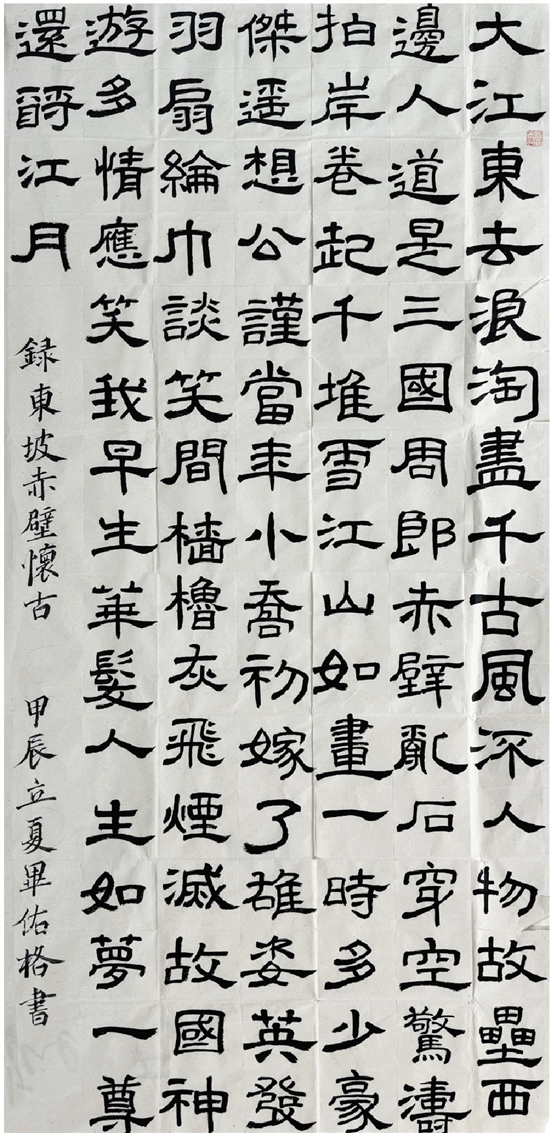 大江東去浪淘盡千古風流人物故壘西
邊人道是三國周郎赤壁亂石穿空驚濤
拍岸卷起千堆雪江山如畫一時多少豪
傑遥想公謹當年小喬初嫁了雄姿英發
羽扇綸巾談笑間檣櫓灰飛煙滅故國神
遊多情應笑我早生華髮人生如夢一尊
還酹江月
録東坡赤壁懷古 甲辰立夏畢佑格書